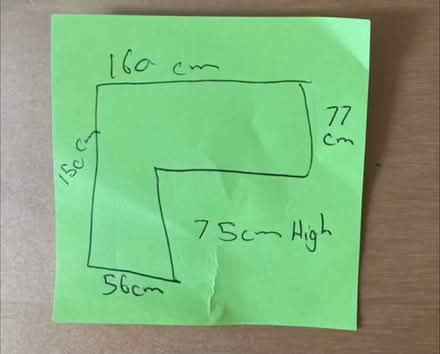 160 cm
77
cm
75cm High
56cm